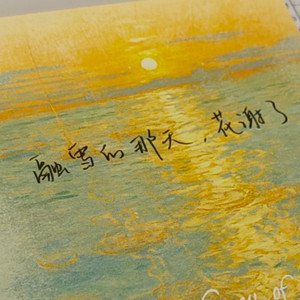 融雪的那天，花谢了
of